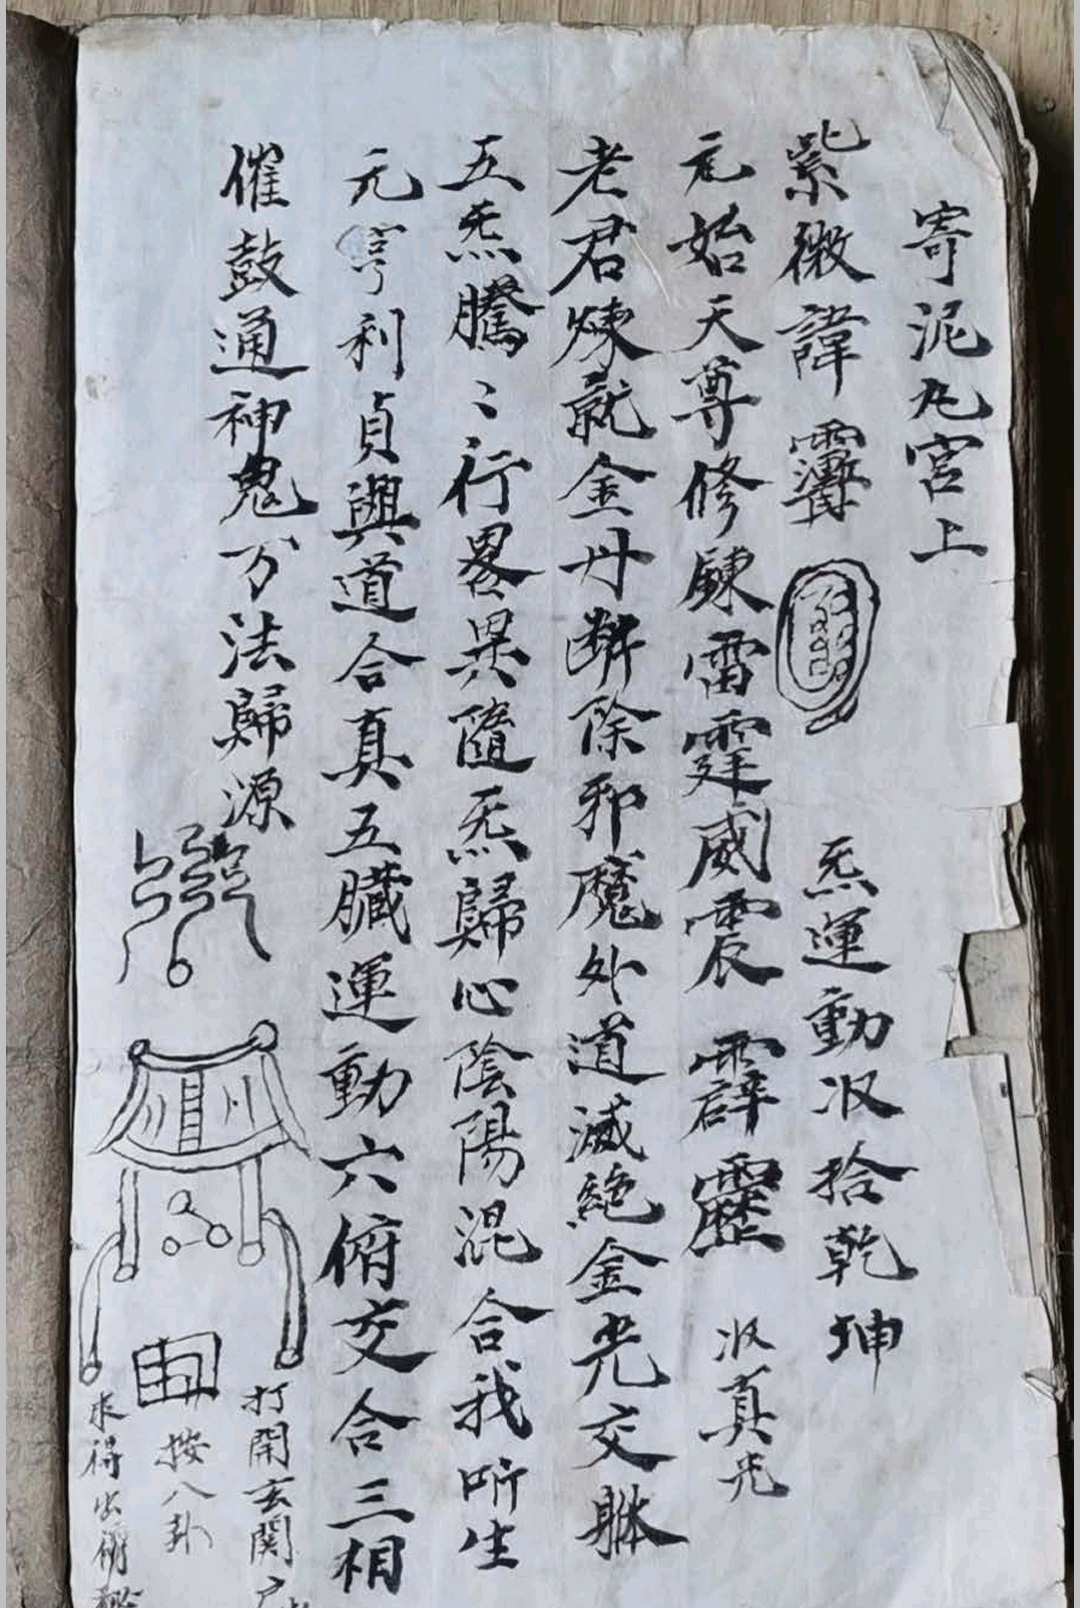 寄泥丸宫上
紫微諱 炁運動収拾乾坤
元始天尊修鍊雷霆威震霹靂 収真炁
老君煉就金丹断除邪魔外道滅絶金光交躰
五炁騰〻行畧異隨炁歸心陰陽混合我所生
元亨利貞與道合真五臟運動六俯交合三相
催鼓通神鬼万法歸源
打開玄関
按八卦
求得出